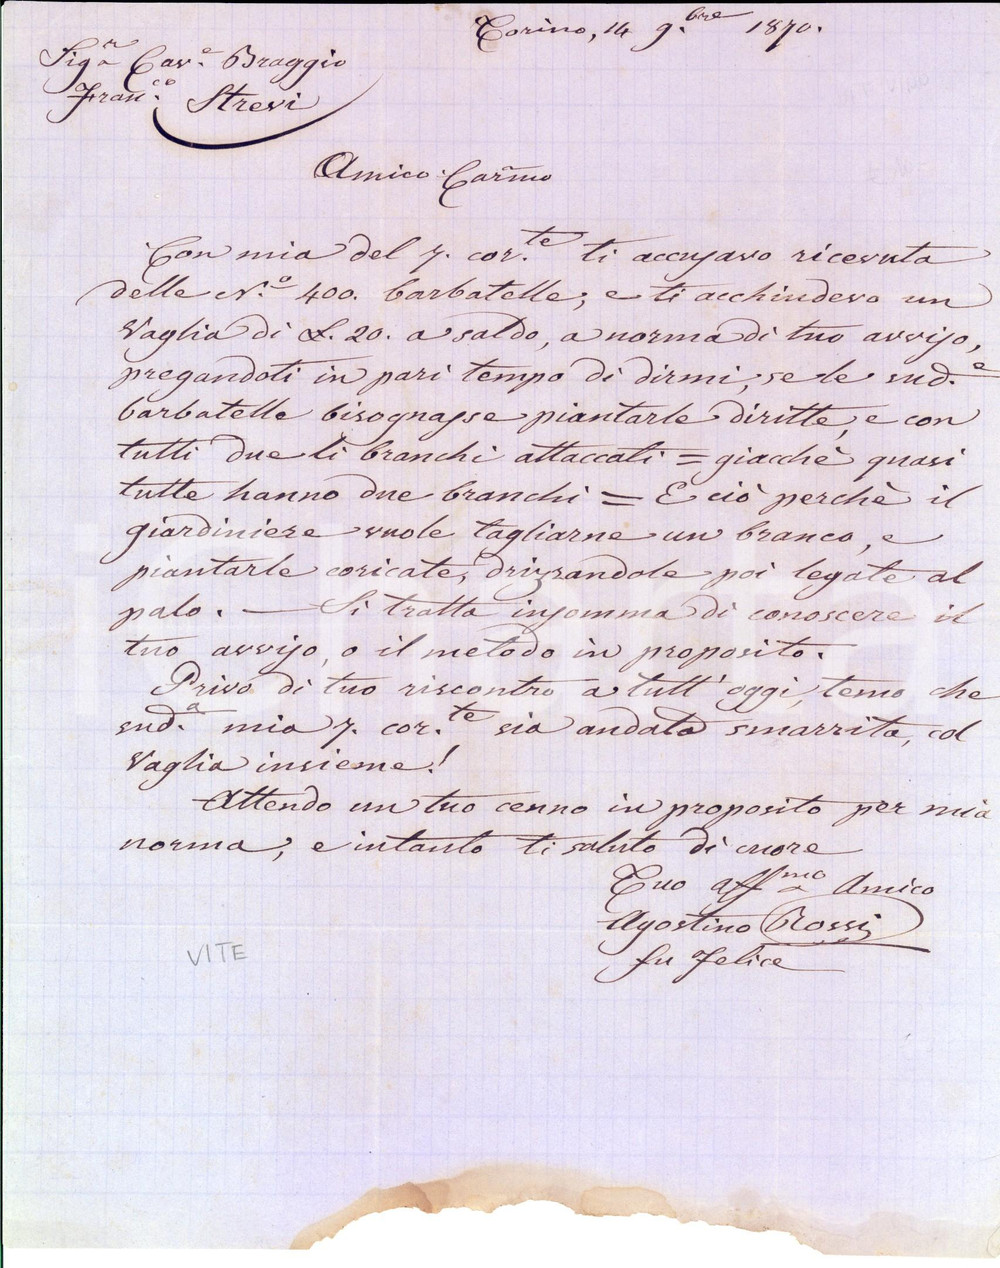 Torino, 14 9.bre 1870.
Sig.r Cav.e Braggio
Fran.co Strevi
Amico Carmo
Con mia del 7. cor.te ti accusavo ricevuta
delle N.o 400. barbatelle; e ti acchiudevo un
Vaglia di £. 20. a saldo, a norma di tuo avviso,
pregandoti in pari tempo di dirmi, se le sud.e
barbatelle bisognasse piantarle diritte, e con
tutti due li branchi attaccati = giacchè quasi
tutte hanno due branchi = E ciò perchè il
giardiniere vuole tagliarne un branco, e
piantarle coricate, drizzandole poi legate al
palo. — Si tratta insomma di conoscere il
tuo avviso, o il metodo in proposito.
Privo di tuo riscontro a tutt' oggi, temo che
sud.a mia 7. cor.te sia andata smarrita, col
Vaglia insieme!
Attendo un tuo cenno in proposito per mia
norma; e intanto ti saluto di cuore
Tuo affmo Amico
Agostino Rossi
fu Felice
VITE